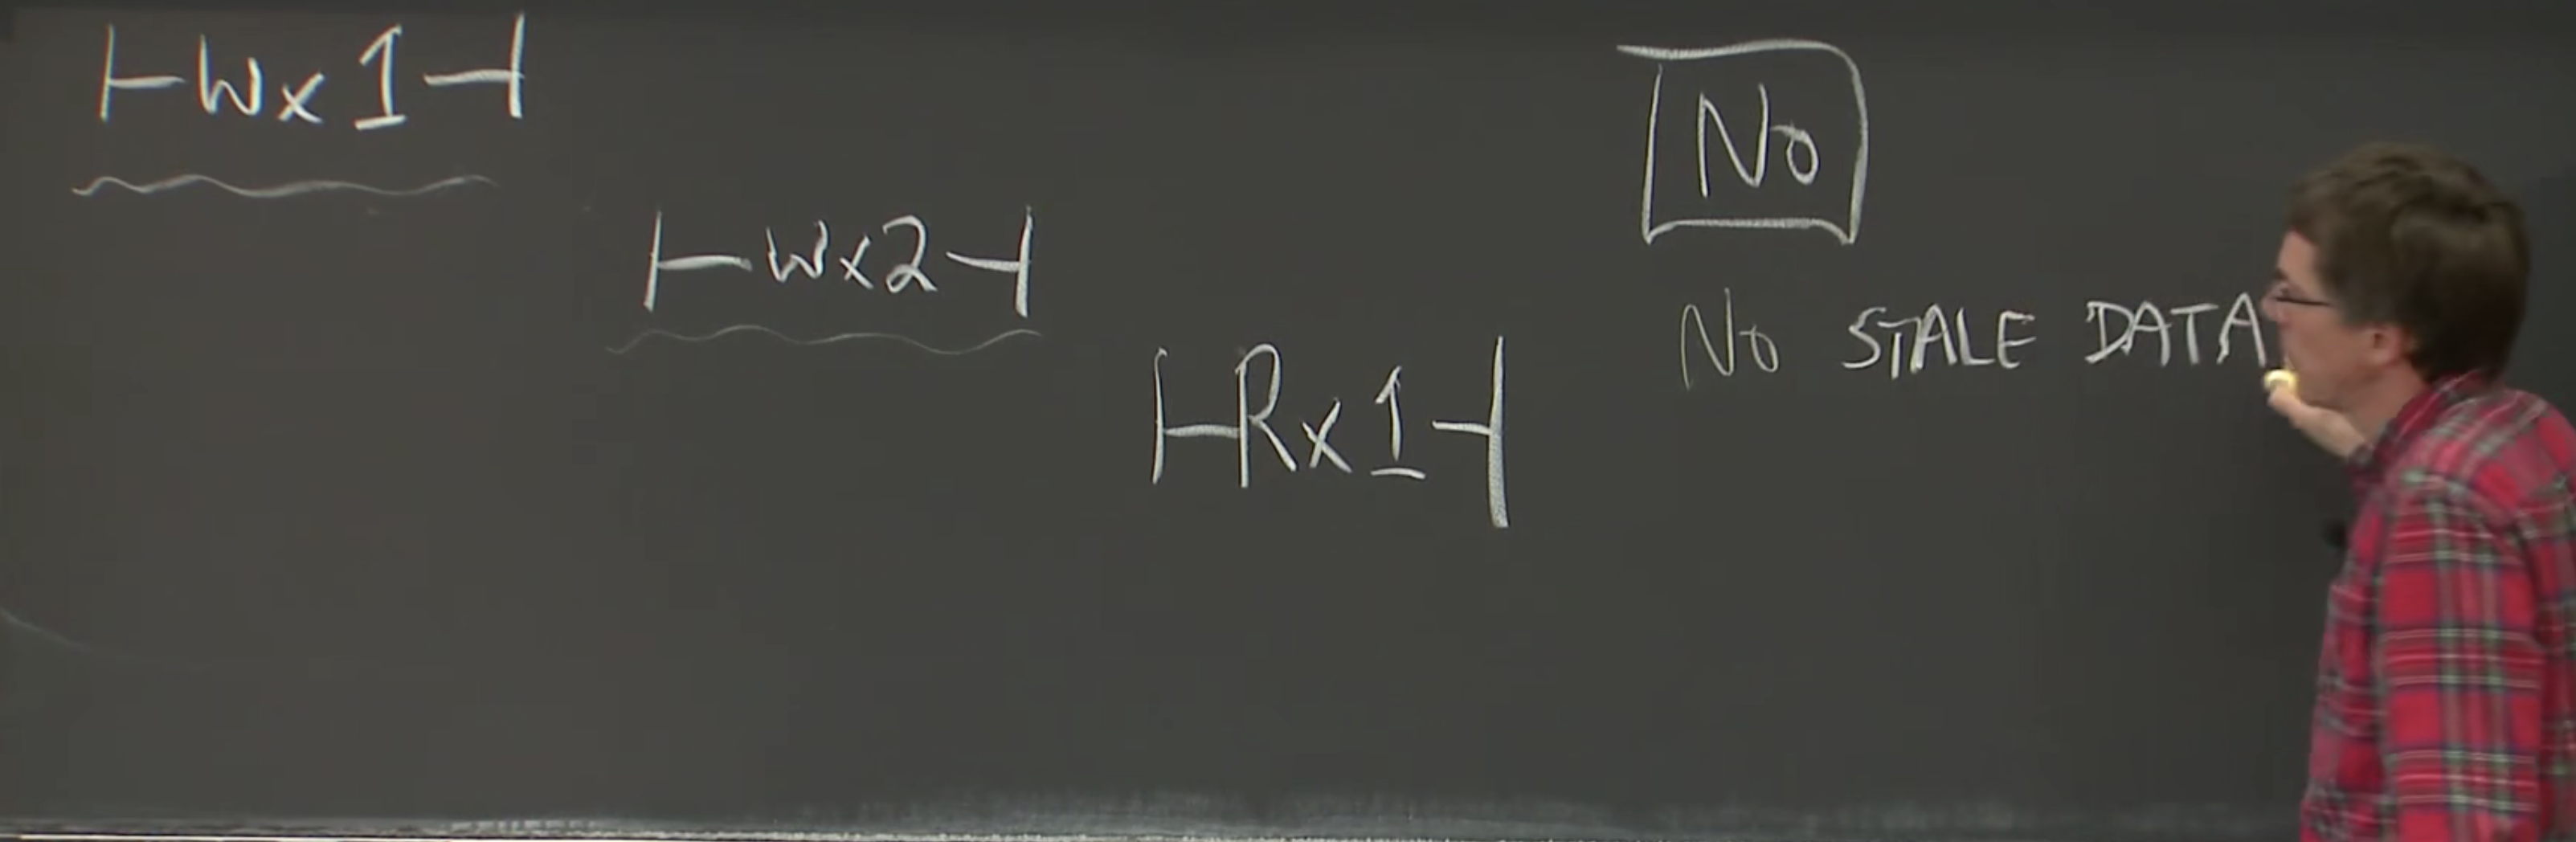 |-Wx1-|
|-Wx2-|
|-Rx1-|
No
No STALE DATA